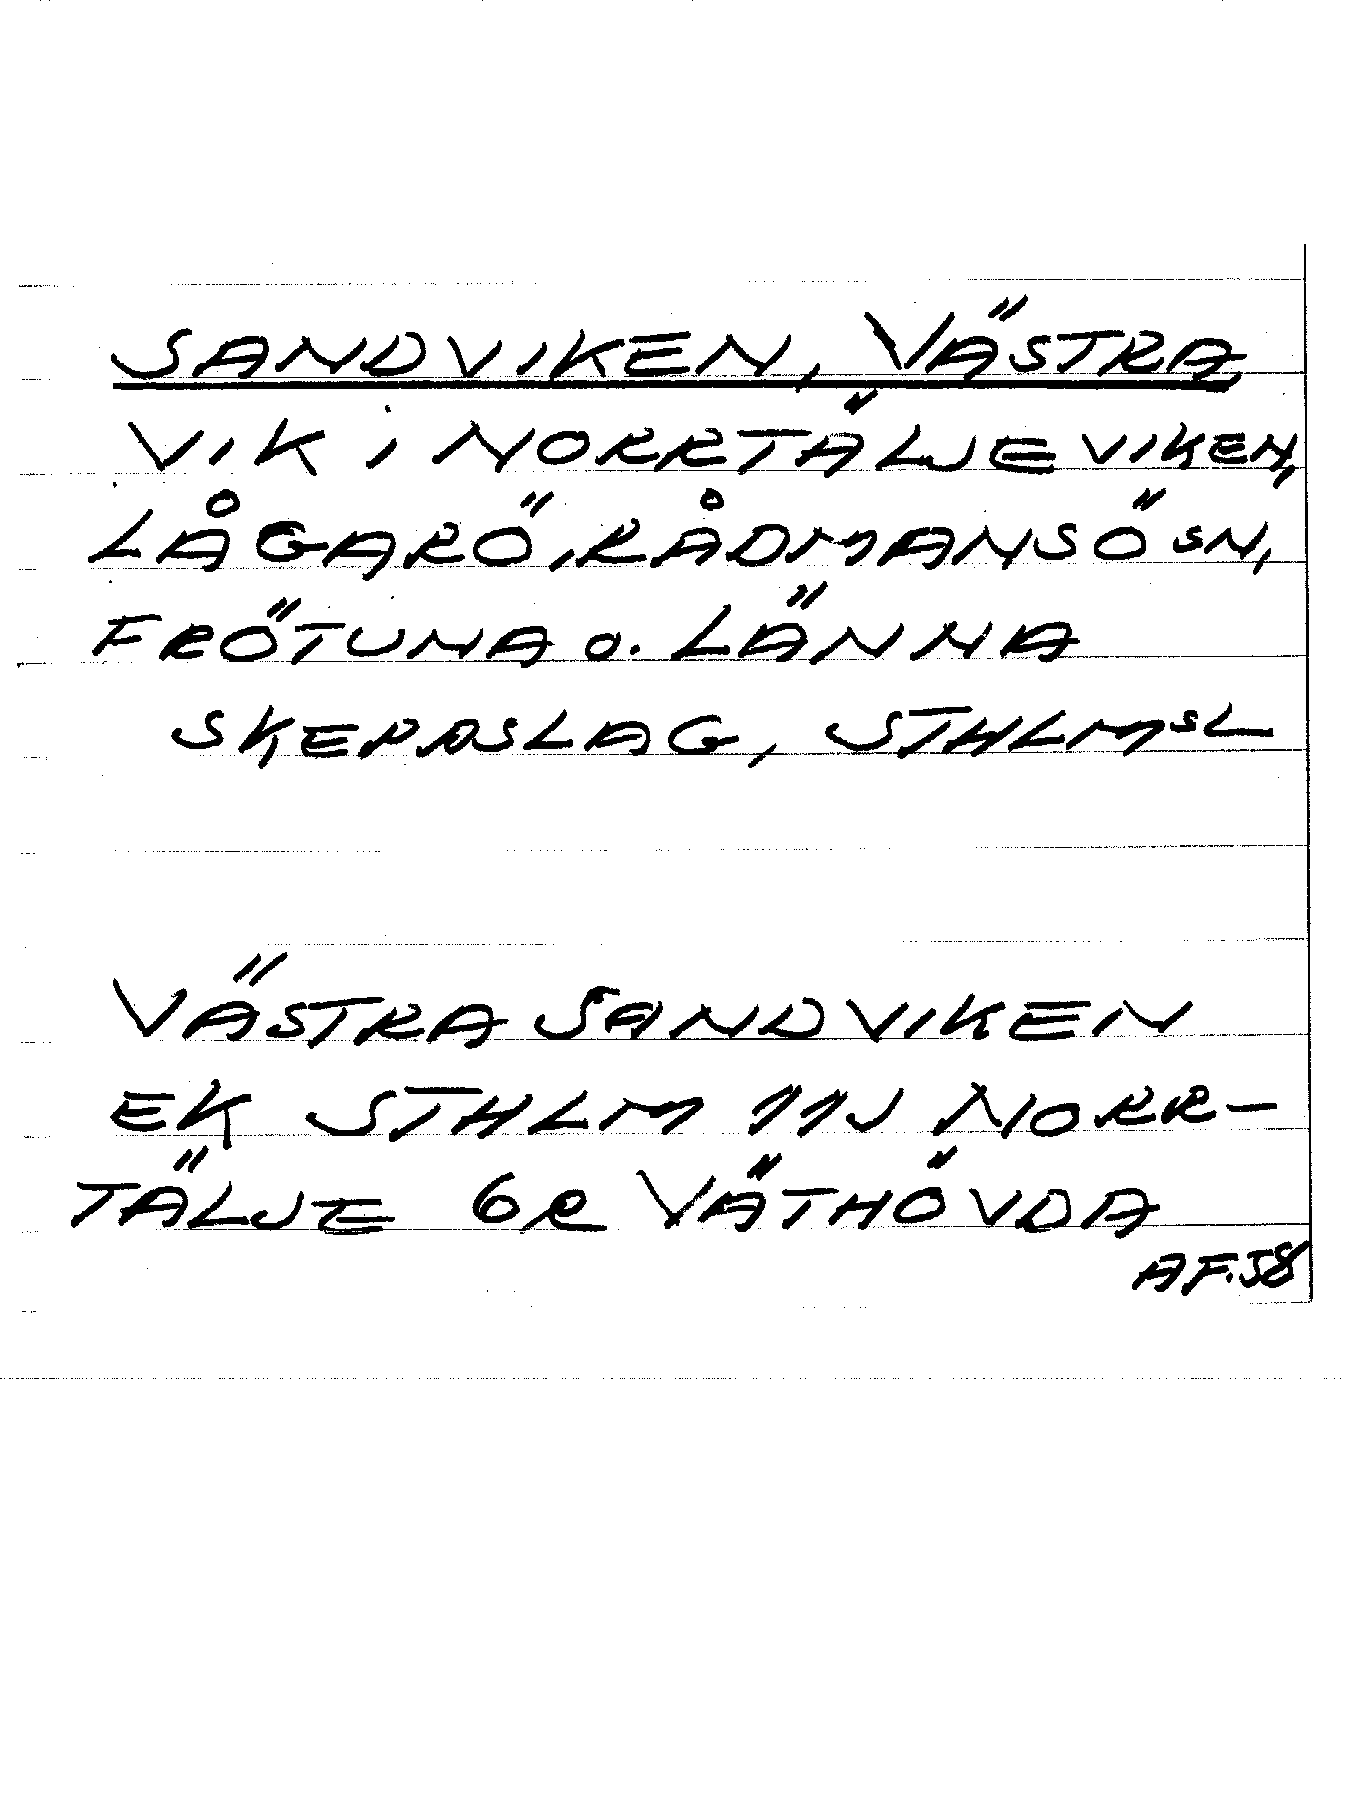 SANDVIKEN, VÄSTRA,
VIK i NORRTÄLJEVIKEN,
LÅGARÖ, RÅDMANSÖ SN,
FRÖTUNA o. LÄNNA
SKEPPSLAG, STHLMSL
VÄSTRA SANDVIKEN
EK STHLM 11J NORR-
TÄLJE 6e VÄTHÖVDA
AF.58